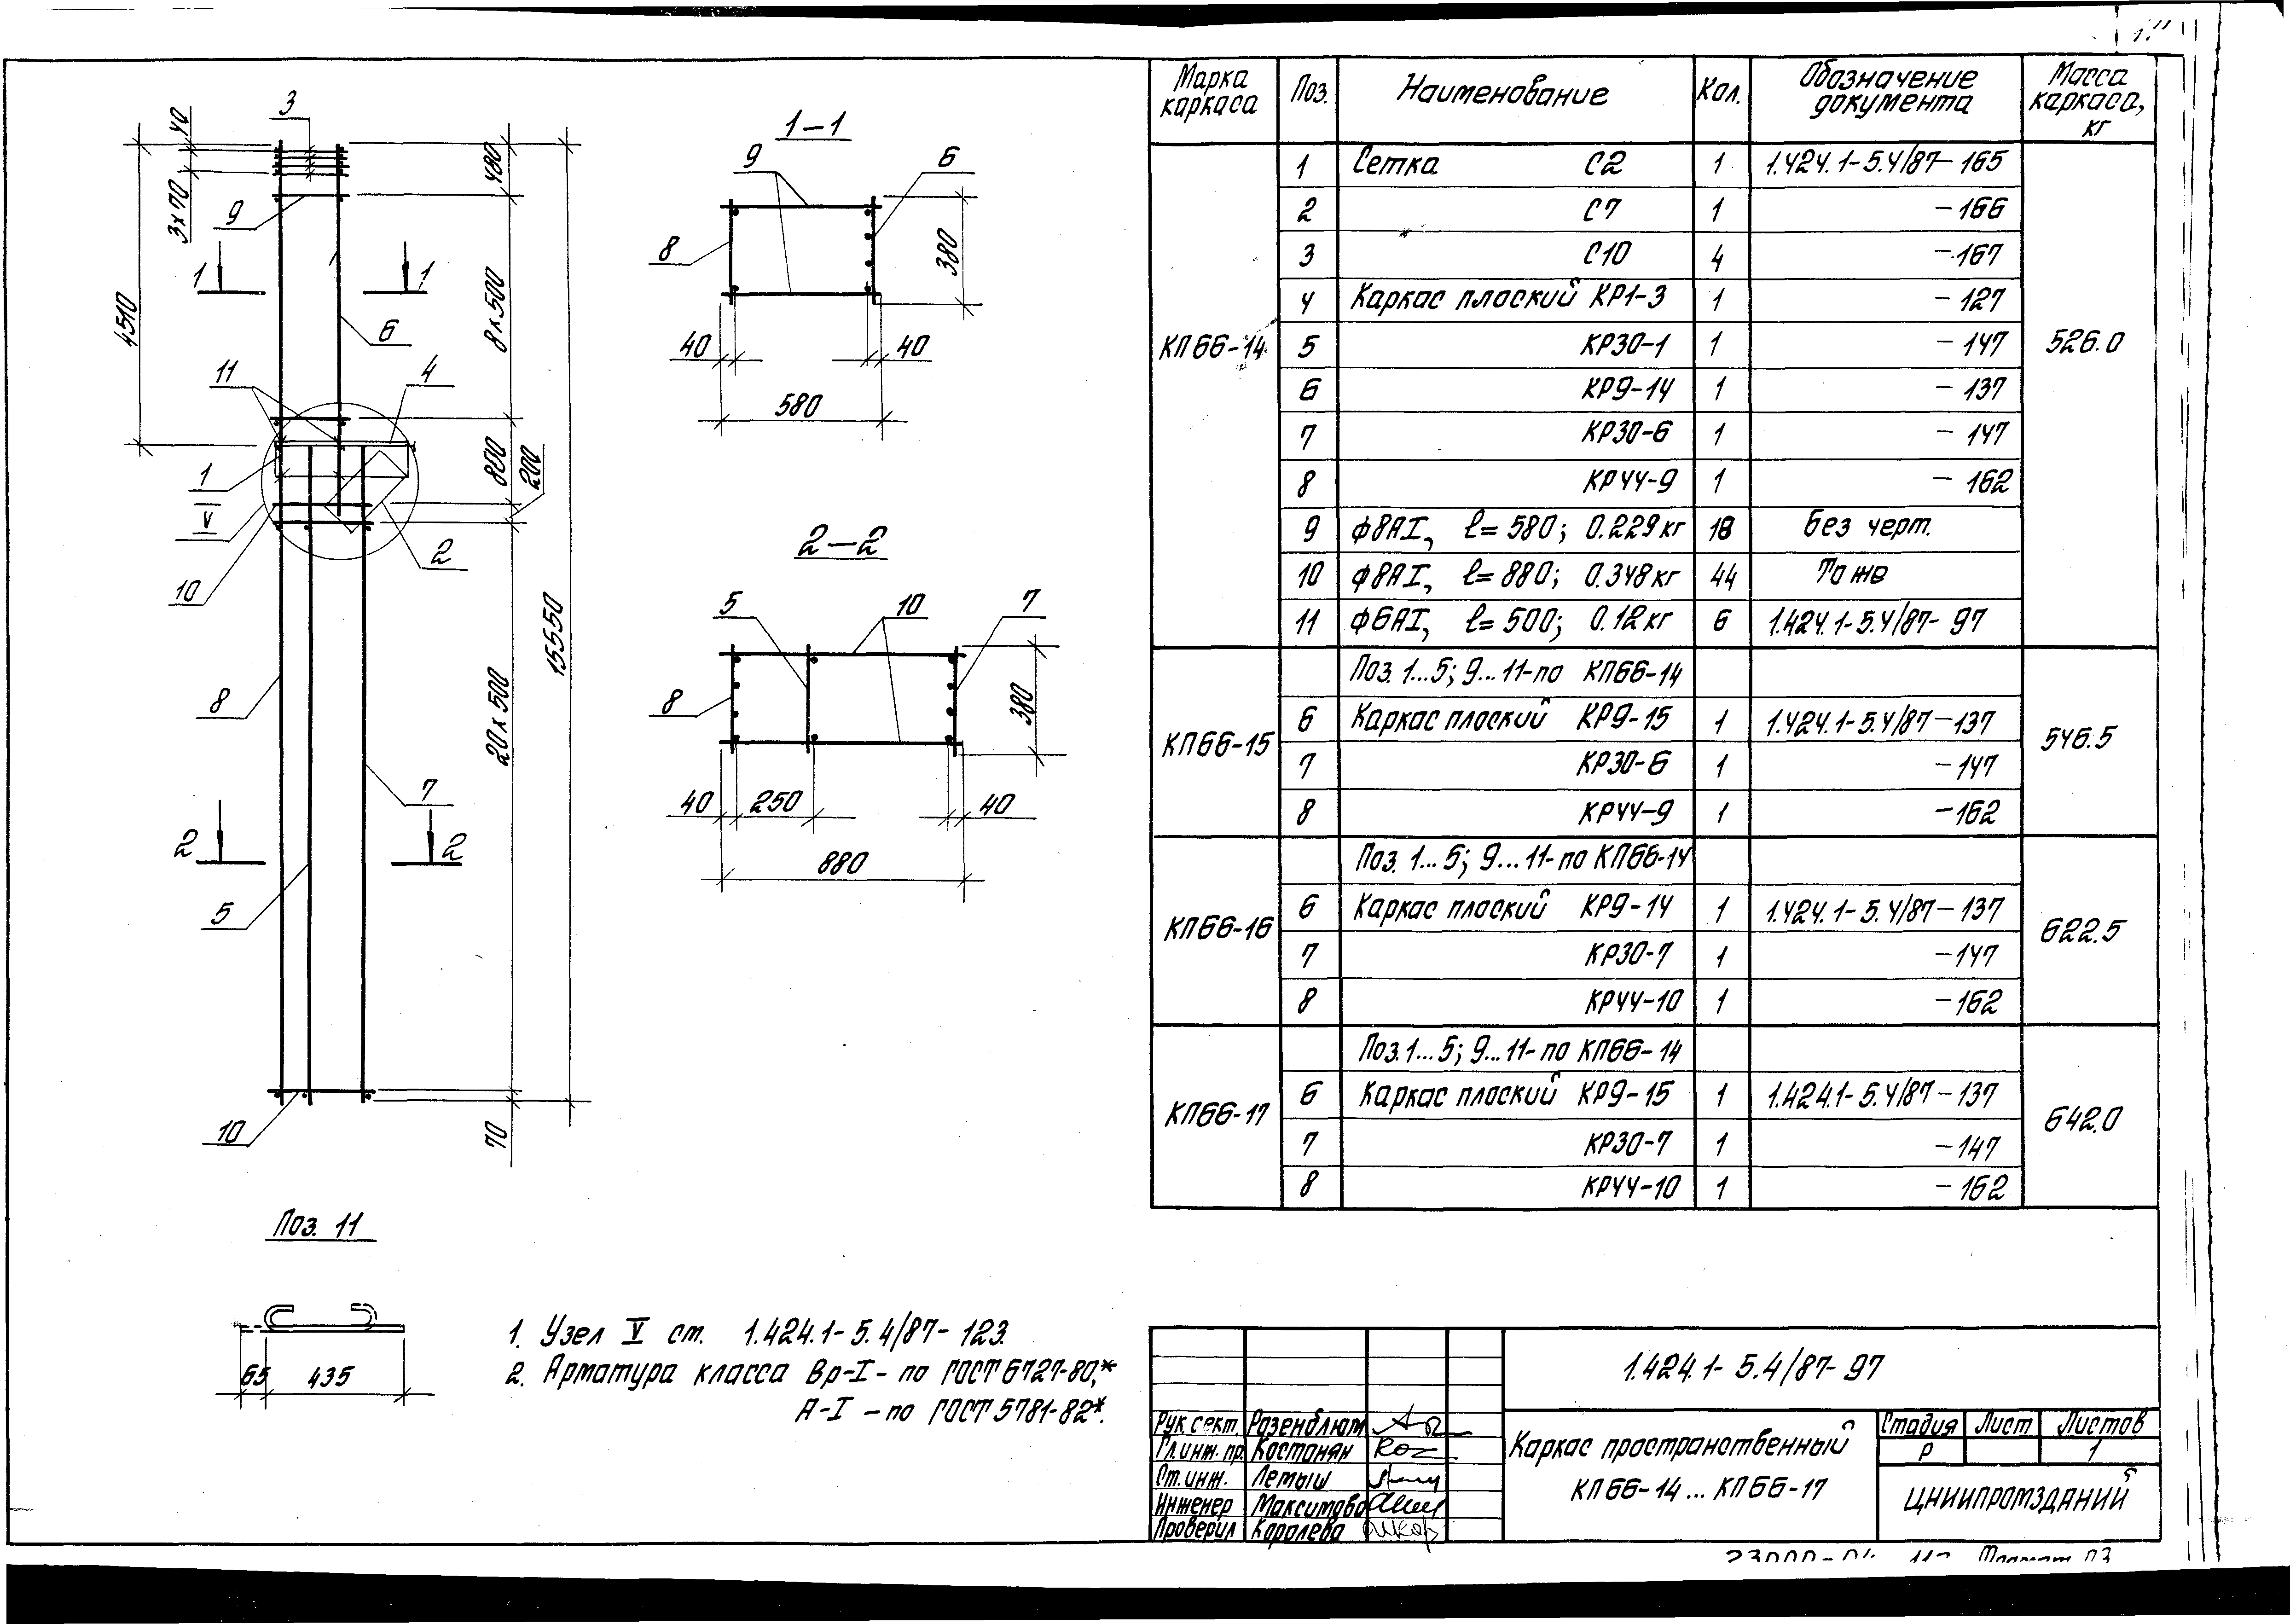 Марка каркаса | Поз. | Наименование | Кол. | Обозначение документа | Масса каркаса, кг
КП66-14 | 1 | Сетка С2 | 1 | 1.424.1-5.4/87-165 | 526.0
2 | С7 | 1 | -166
3 | С10 | 4 | -167
4 | Каркас плоский КР1-3 | 1 | -127
5 | КР30-1 | 1 | -147
6 | КР9-14 | 1 | -137
7 | КР30-6 | 1 | -147
8 | КР44-9 | 1 | -162
9 | ф8АI, ℓ=580; 0.229кг | 18 | без черт.
10 | ф8АI, ℓ=880; 0.348кг | 44 | То же
11 | ф6АI, ℓ=500; 0.12кг | 6 | 1.424.1-5.4/87-97
КП66-15 | Поз. 1...5; 9...11-по КП66-14 | 546.5
6 | Каркас плоский КР9-15 | 1 | 1.424.1-5.4/87-137
7 | КР30-6 | 1 | -147
8 | КР44-9 | 1 | -162
КП66-16 | Поз. 1...5; 9...11-по КП66-14 | 622.5
6 | Каркас плоский КР9-14 | 1 | 1.424.1-5.4/87-137
7 | КР30-7 | 1 | -147
8 | КР44-10 | 1 | -162
КП66-17 | Поз. 1...5; 9...11-по КП66-14 | 642.0
6 | Каркас плоский КР9-15 | 1 | 1.424.1-5.4/87-137
7 | КР30-7 | 1 | -147
8 | КР44-10 | 1 | -162
3
40
3х70
480
9
1
1
4510
8х500
6
11
4
1
V
800
200
2
10
15550
8
20х500
7
2
2
5
10
70
1-1
9
6
8
380
40
40
580
2-2
5
10
7
8
380
40
250
40
880
Поз. 11
65
435
1. Узел V см. 1.424.1-5.4/87-123.
2. Арматура класса Вр-I - по ГОСТ 6727-80,*
А-I - по ГОСТ 5781-82*.
1.424.1-5.4/87-97
Рук.сект. Розенблюм
Гл.инж.пр. Костанян
Ст.инж. Летыш
Инженер Максимова
Проверил Королева
Каркас пространственный
КП66-14...КП66-17
Стадия | Лист | Листов
Р | | 1
ЦНИИПРОМЗДАНИЙ